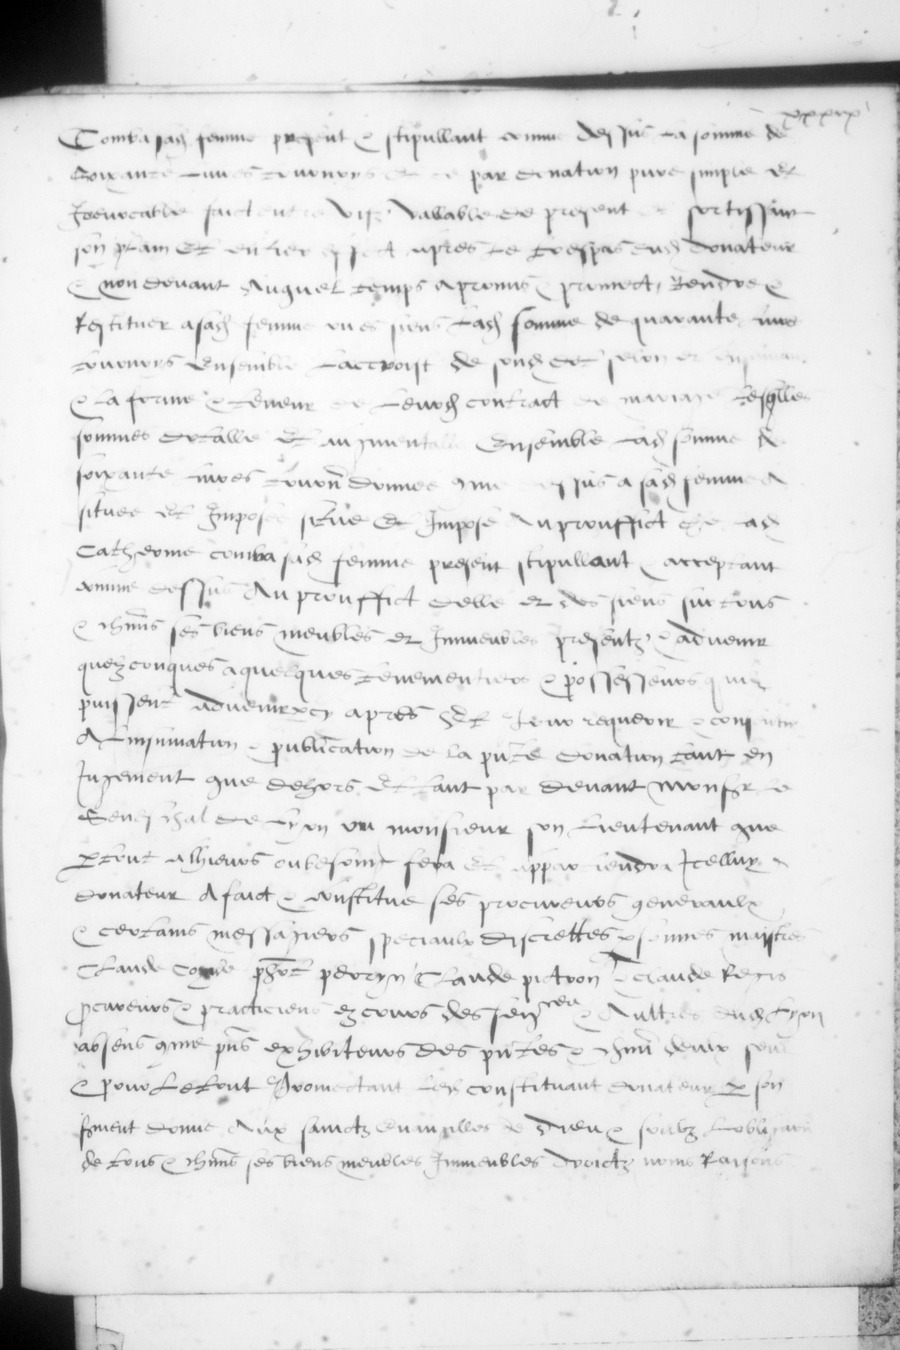 xxxix
Comba sad femme present & stipullant comme dessus la somme de
Soixante livres tournoys et ce par donation pure simple et
Irrevocable faicte entre vifz vallable de present et sortissant
son plain et entier effect apres le trespas dud donateur
& non devant Auquel temps a promis & promect Rendre &
Restituer a sad femme ou es siens lad somme de quarante livres
tournoys ensemble laccroist de sond et selon et
& la forme & teneur de leurd contract de mariage lesqlles
sommes totalle et augmentalle Ensemble lad somme de
soixante livres tourn donnee cme dessus a sad femme A
situee et Imposee situe et Impose Au prouffict de lad
Catherine comba sad femme present stipullant & acceptant
comme dessus Au prouffict delle et des siens sur tous
& chuns ses biens meubles et Immeubles presentz & advenir
quelzconques a quelques tenementiers & possesseurs quilz
puissent advenir cy apres et requerir & consentir
A linsinuation & publication de la pnte donation tant en
Jugement que dehors et tant par devant Monsr le
Seneschal de Lyon ou monsieur son lieutenant que
p tout alhieurs ou besoing sera et appartiendra Icelluy
donateur A faict & constitue ses procureurs generaulx
& certains messagiers speciaulx discrettes psonnes maistres
Claude perryn Claude pictron & Claude Regis
procureurs & practiciens ez cours des & Aultres dud Lyon
absens cme pns exhibiteurs des pntes & chun deulx seul
& pour le tout Promectant led constituant donateur p son
serment donne Aux sainctz Euangilles de dieu & soubz lobligation
de tous & chuns ses biens meubles Immeubles droictz noms Raisons